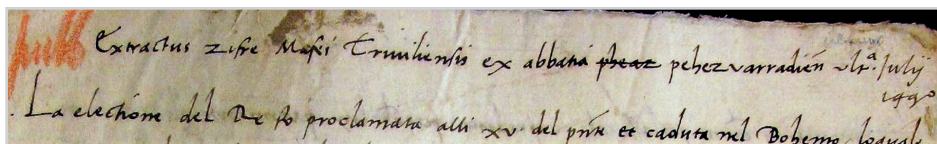 Extractus zifre Mafei Triviliensis ex abbatia pheaz pehezvarradien̄ ult.ª Julij
1490
La electione del Re fo proclamata alli xv del pn̄te et caduta nel Bohemo, loquale